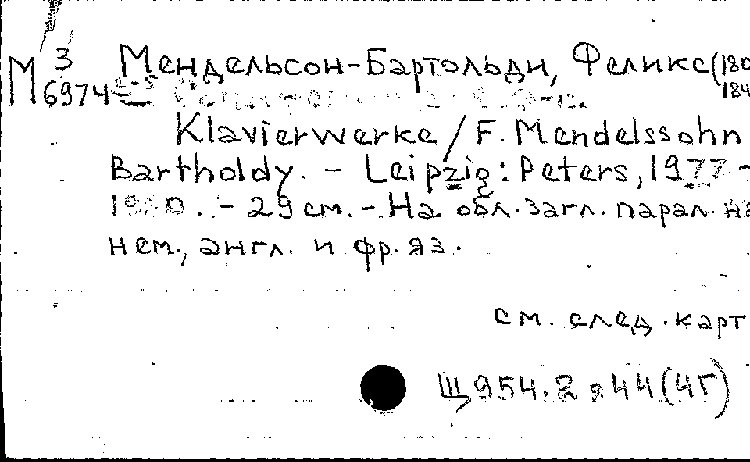 М 3 Мендельсон-Бартольди, Феликс (180
6974 184
Klavierwerke / F. Mendelssohn
Bartholdy. – Leipzig: Peters, 1977 –
1980. – 29 см. – На обл. загл. парал. на
нем., англ. и фр. яз.
см. след. карт
Щ954.2 я44(4Г)